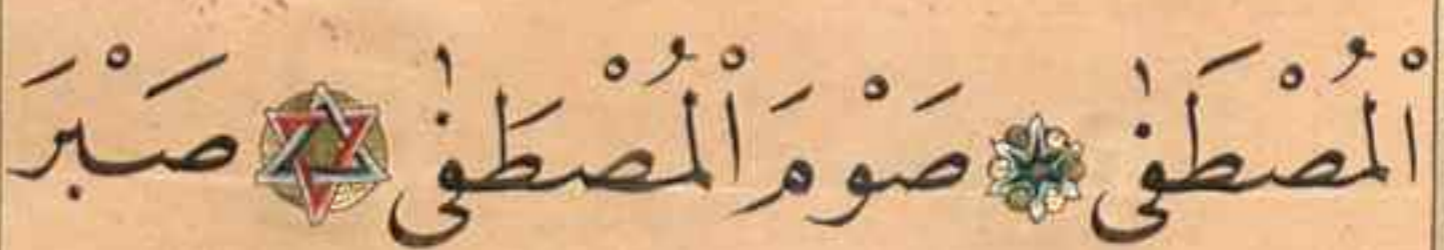 الْمُصْطَفٰى صَوْمَ الْمُصْطَفٰى صَبْرَ